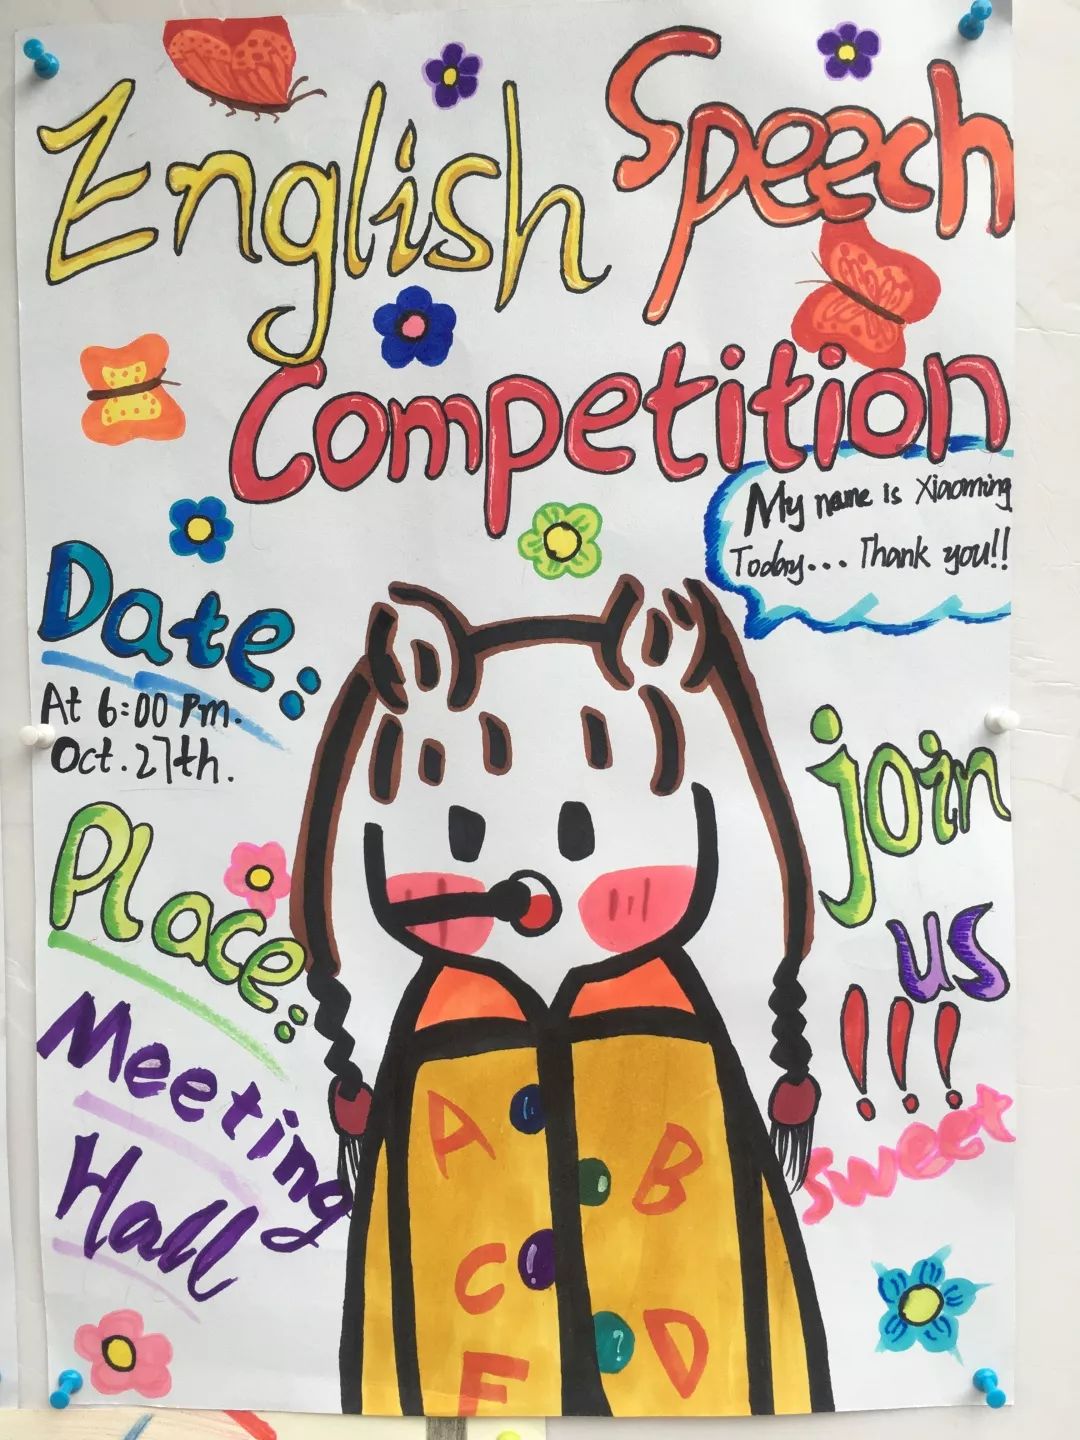 English Speech
Competition
My name is Xiaoming
Today... Thank you!!
Date:
At 6:00 Pm.
Oct.27th.
Place:
Meeting
Hall
join
us
!!!
Sweet
A
B
C
D
F
?